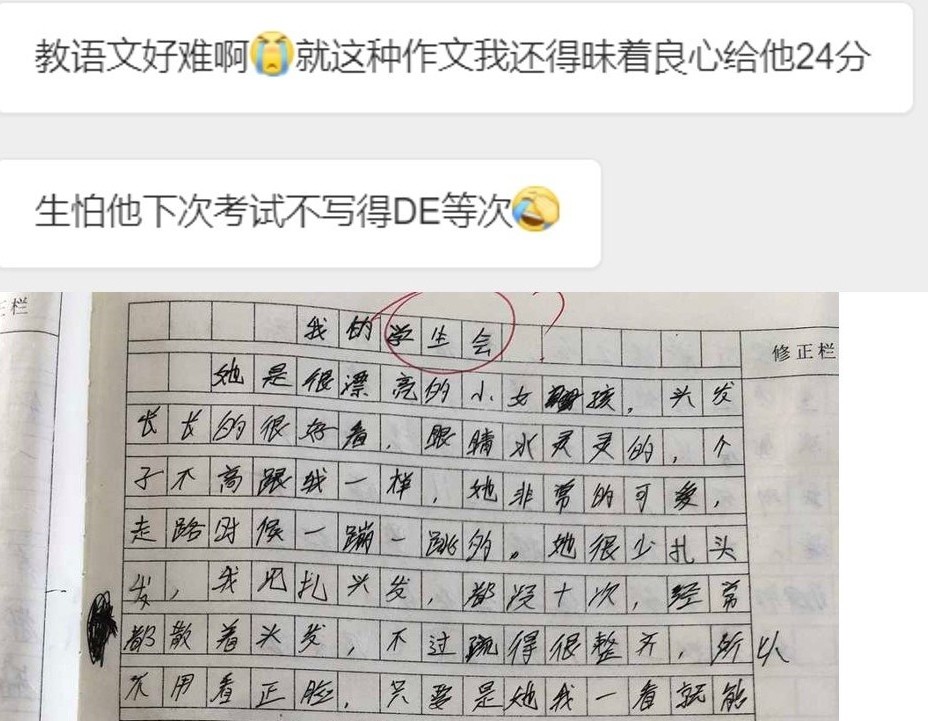 教语文好难啊😭就这种作文我还得昧着良心给他24分
生怕他下次考试不写得DE等次🤣
正栏
我的学生会 ?
修正栏
她是很漂亮的小女孩，头发
长长的很好看，眼睛水灵灵的，个
子不高跟我一样，她非常的可爱，
走路时候一蹦一跳的。她很少扎头
发，我见扎头发，都没十次，经常
都散着头发，不过梳得很整齐，所以
不用看正脸，只要是她我一看就能